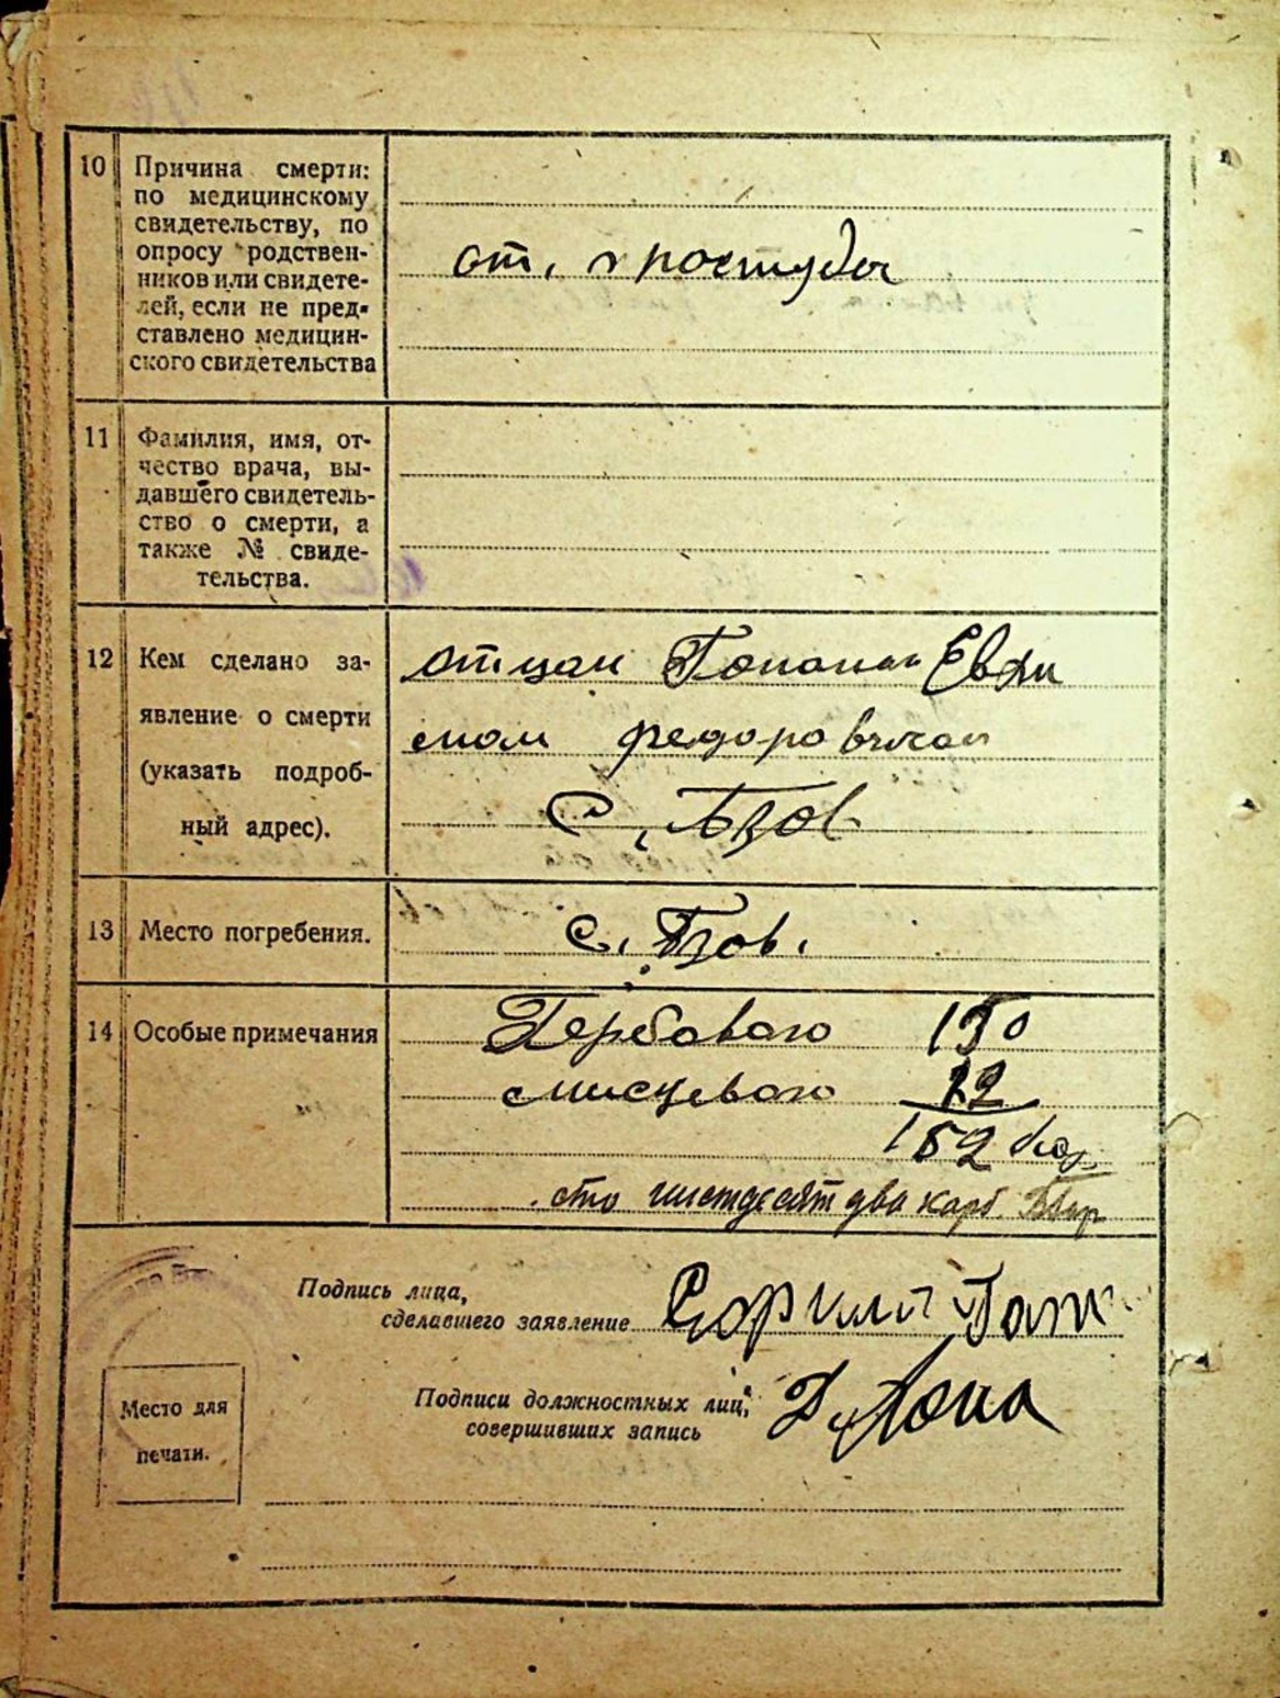 10 Причина смерти:
по медицинскому
свидетельству, по
опросу родствен-
ников или свидете-
лей, если не пред-
ставлено медицин-
ского свидетельства
от. простуды
11 Фамилия, имя, от-
чество врача, вы-
давшего свидетель-
ство о смерти, а
также № свиде-
тельства.
12 Кем сделано за-
явление о смерти
(указать подроб-
ный адрес).
отцом Евхи
мом федоровичом
С.
13 Место погребения.
с.
14 Особые примечания
Гербового 150
мисцевого 12
162
сто шистдесят два карб.
Подпись лица,
сделавшего заявление
Подписи должностных лиц,
совершивших запись
Место для
печати.